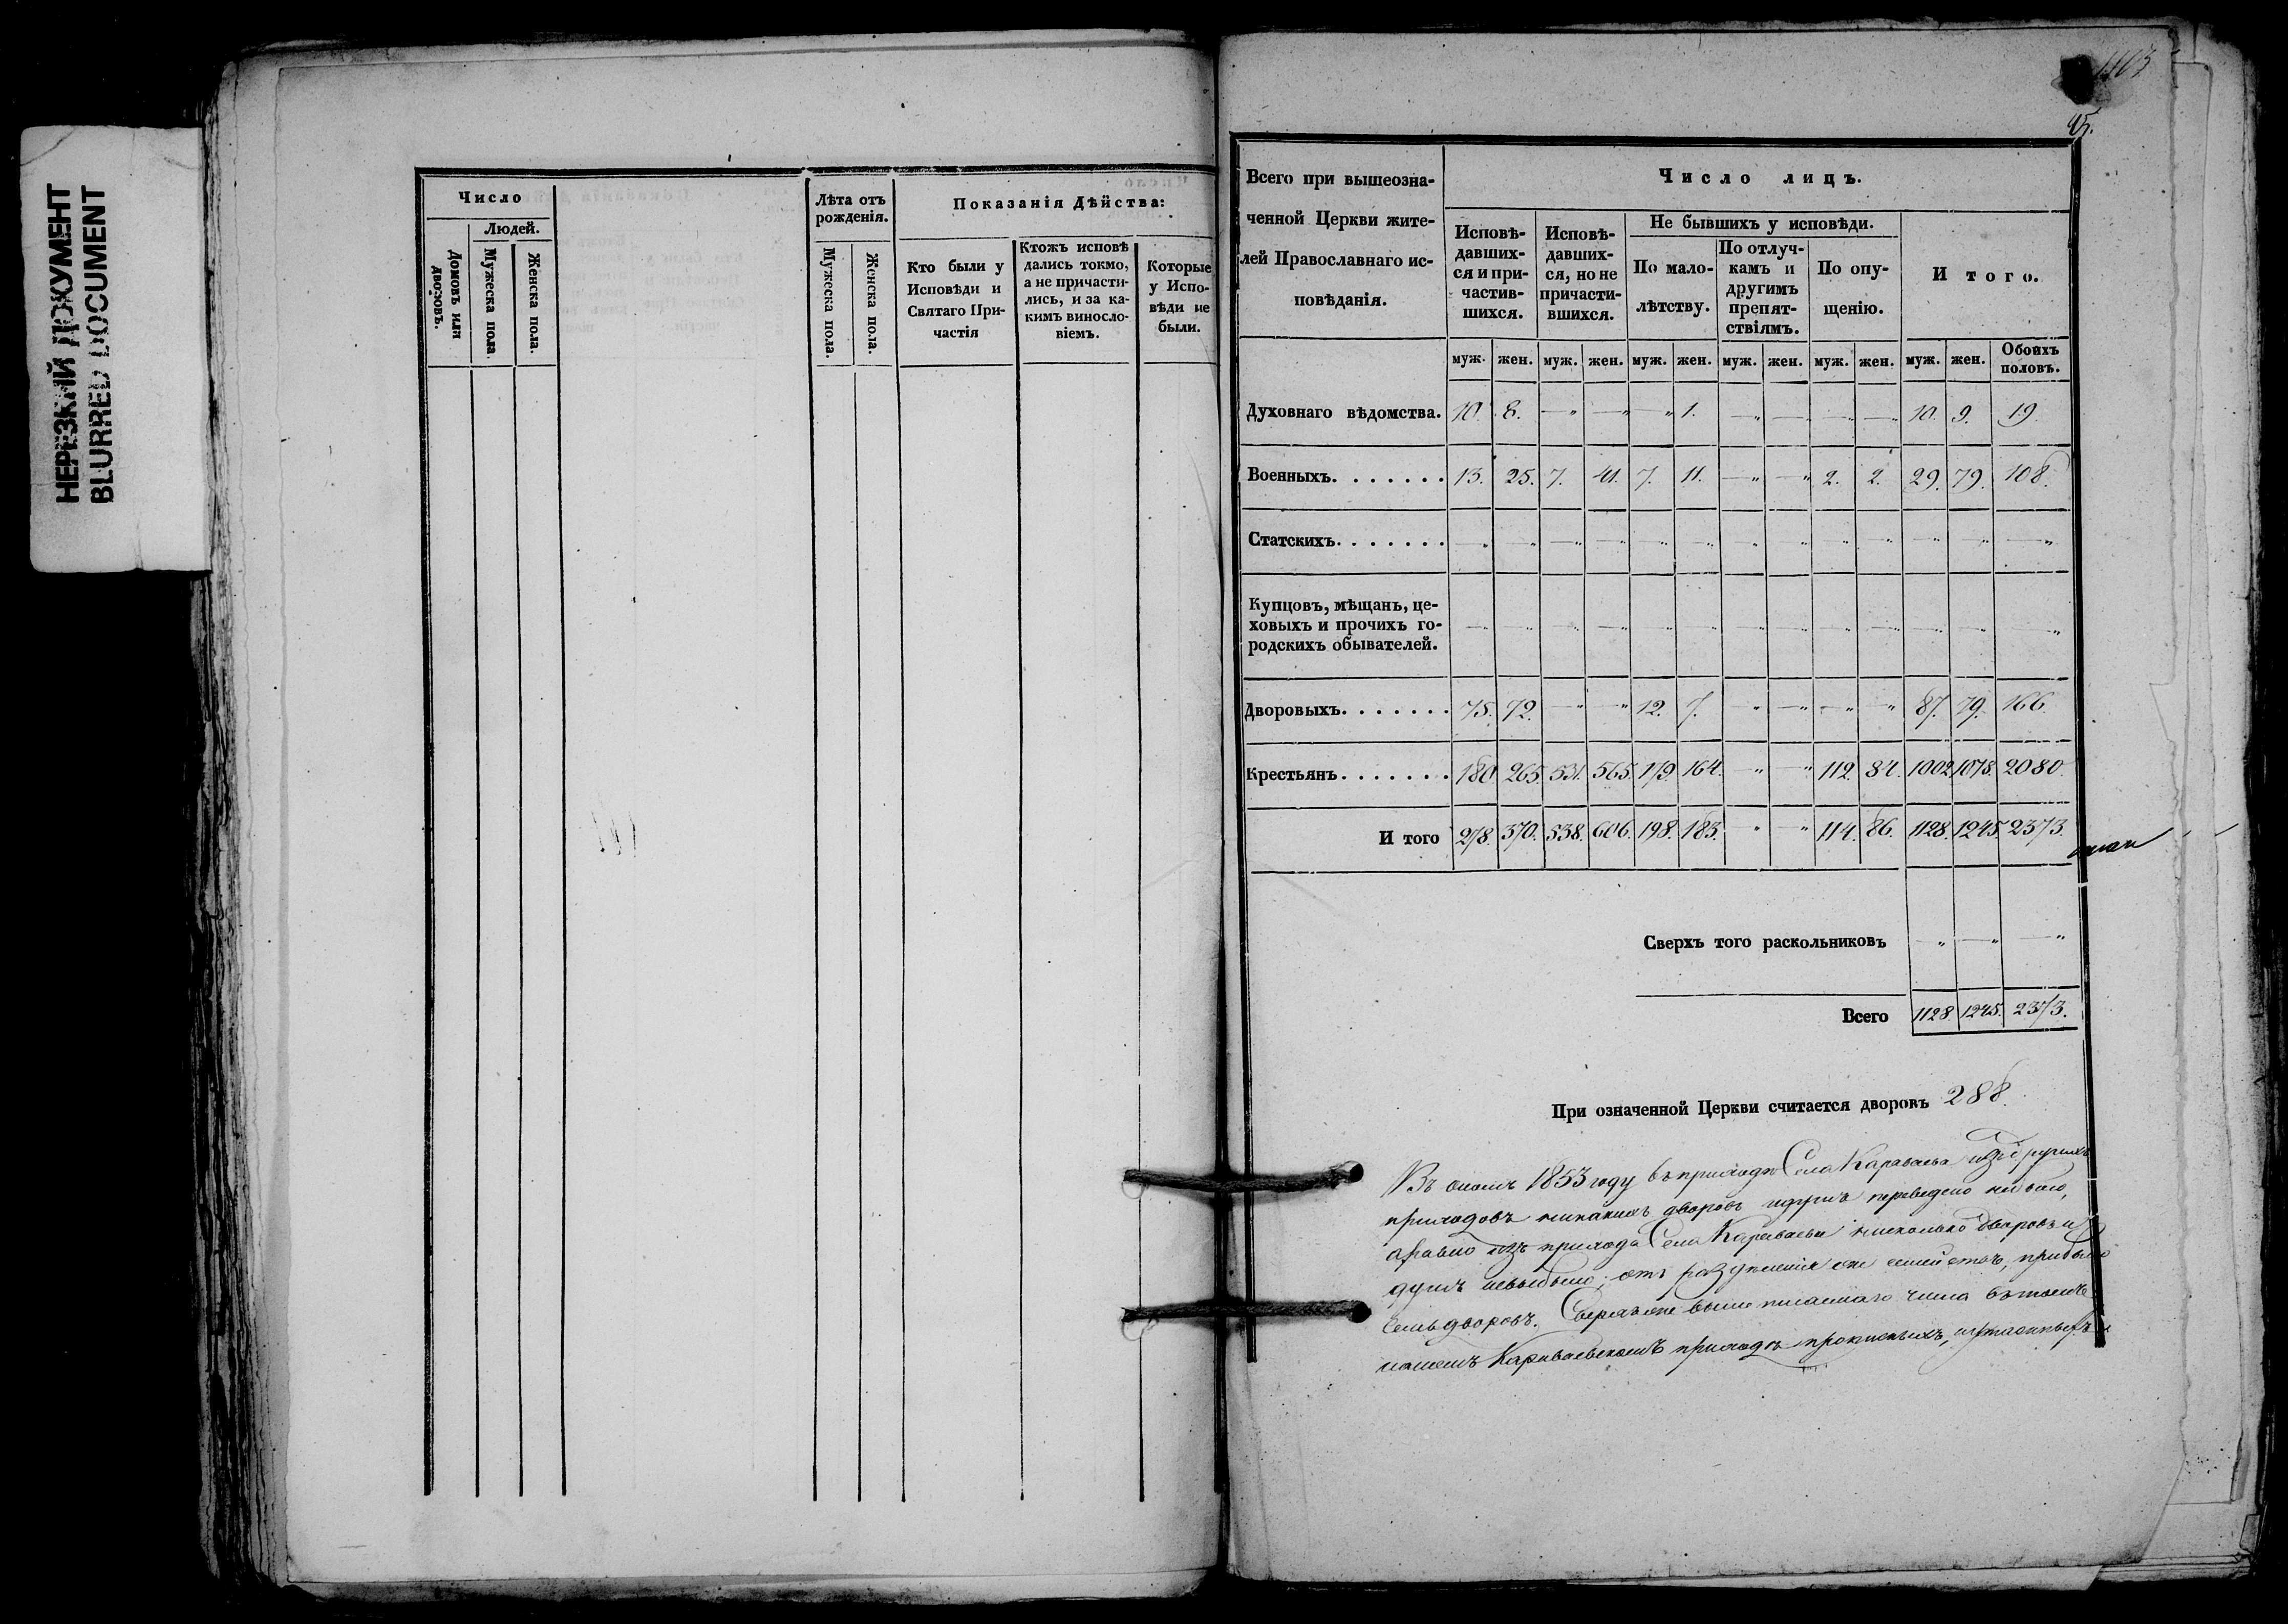 НЕРЕЗКИЙ ДОКУМЕНТ
BLURRED DOCUMENT
Число
Людей.
Домовъ или дворовъ.
Мужеска пола.
Женска пола.
Лѣта отъ рожденія.
Мужеска пола.
Женска пола.
Показанія Дѣйства:
Кто были у
Исповѣди и
Святаго При-
частія
Ктожъ исповѣ
дались токмо,
а не причасти-
лись, и за ка-
кимъ винусло-
віемъ.
Которые
у Испо-
вѣди не
были.
45.
Всего при вышеозна-
ченной Церкви жите-
лей Православнаго ис-
повѣданія.
Число лицъ.
Исповѣ-
давших-
ся и при-
частив-
шихся.
Исповѣ-
давших-
ся, но не
причасти-
вшихся.
Не бывшихъ у исповѣди.
По мало-
лѣтству.
По отлуч-
камъ и
другимъ
препят-
ствіямъ.
По опу-
щенію.
Итого.
муж. жен. муж. жен. муж. жен. муж. жен. муж. жен. муж. жен. Обоихъ половъ.
Духовнаго вѣдомства. 10. 8. —„ —„ —„ 1. —„ —„ —„ —„ 10. 9. 19.
Военныхъ. . . . . . . 13. 25. 7. 41. 7. 11. —„ —„ 2. 2. 29. 79. 108.
Статскихъ. . . . . . . —„ —„ —„ —„ —„ —„ „ „ —„ —„ —„ —„ —„
Купцовъ, мѣщанъ, це-
ховыхъ и прочихъ го-
родскихъ обывателей. —„ —„ —„ —„ —„ —„ —„ —„ —„ —„ —„ —„ „
Дворовыхъ. . . . . . . 75. 72. —„ —„ 12. 7. „ —„ —„ „ 87. 79. 166.
Крестьянъ . . . . . . . 180. 265. 531. 565. 179. 164. —„ „ 112. 84. 1002. 1078. 2080.
И того 278. 370. 538. 606. 198. 183. „ „ 114. 86. 1128. 1245. 2373.
Сверхъ того раскольниковъ „ —„ —„
Всего 1128. 1245. 2373.
При означенной Церкви считается дворовъ 288.
Въ семъ 1853 году въ приходъ Села Караваева изъ другихъ
приходовъ никакихъ дворовъ и душъ переведено не было,
а равно изъ прихода Села Караваева нисколько дворовъ и
душъ не выбыло; отъ раздѣленія же семействъ, прибыло
семь дворовъ. Сверхъ же выше писаннаго числа въ томъ
нашемъ Караваевскомъ приходѣ прописныхъ, и утаенныхъ